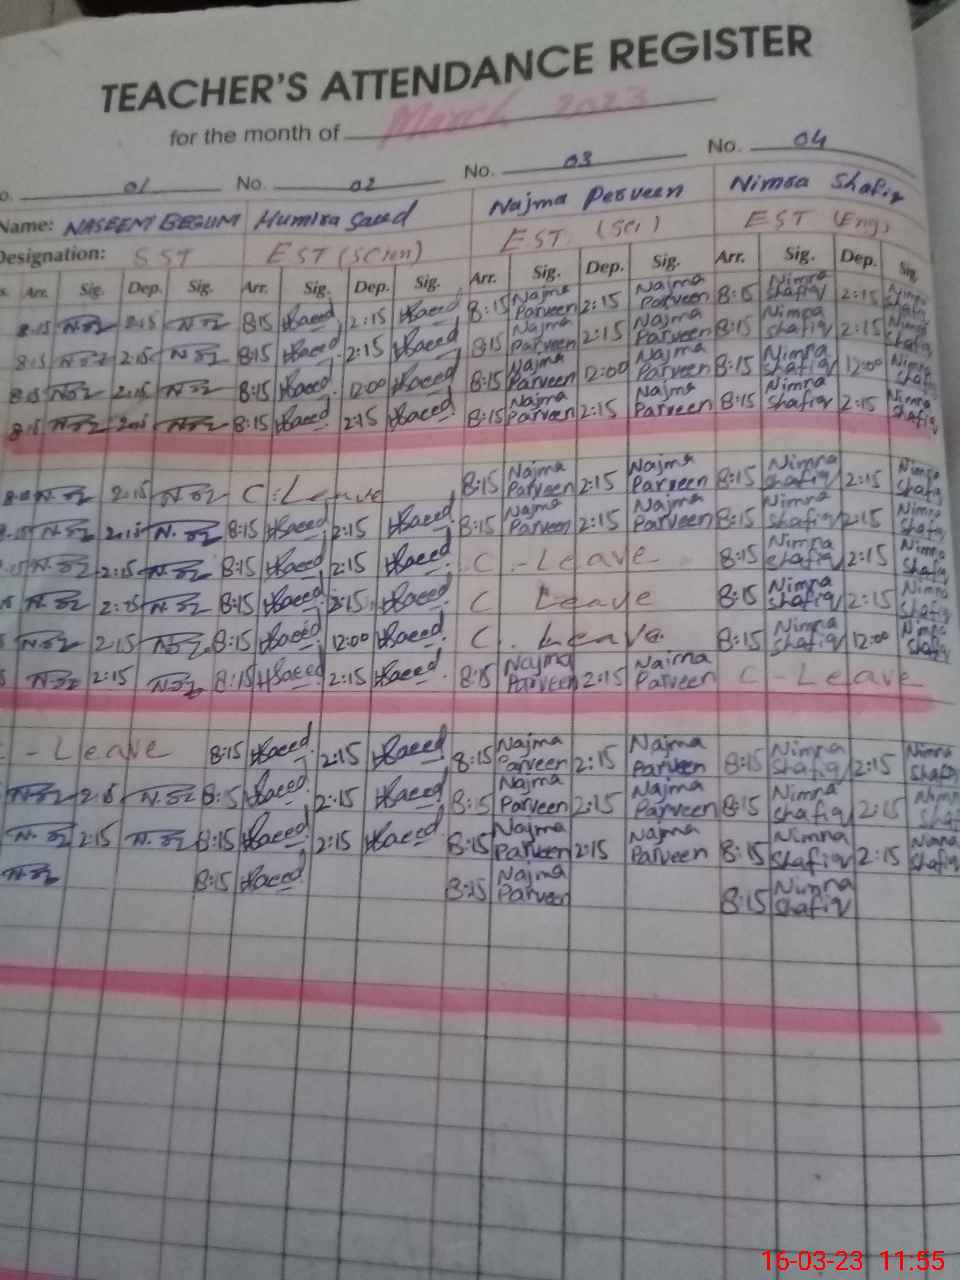 TEACHER'S ATTENDANCE REGISTER
for the month of March 2023
o. 01 No. 02 No. 03 No. 04
Name: NASEEM BEGUM Humira Saeed Najma Perveen Nimra Shafiq
Designation: SST EST (Scien) EST (Sci) EST (Eng)
s. Arr. Sig. Dep. Sig. Arr. Sig. Dep. Sig. Arr. Sig. Dep. Sig. Arr. Sig. Dep. Sig.
8:15 2:15 8:15 HSaeed 2:15 HSaeed 8:15 Najma Parveen 2:15 Najma Parveen 8:15 Nimra Shafiq 2:15 Nimra Shafiq
8:15 2:15 8:15 HSaeed 2:15 HSaeed 8:15 Najma Parveen 2:15 Najma Parveen 8:15 Nimra Shafiq 2:15 Nimra Shafiq
8:15 2:15 8:15 HSaeed 12:00 HSaeed 8:15 Najma Parveen 12:00 Najma Parveen 8:15 Nimra Shafiq 12:00 Nimra Shafiq
8:15 2:15 8:15 HSaeed 2:15 HSaeed 8:15 Najma Parveen 2:15 Najma Parveen 8:15 Nimra Shafiq 2:15 Nimra Shafiq
2:15 C. Leave 8:15 Najma Parveen 2:15 Najma Parveen 8:15 Nimra Shafiq 2:15 Nimra Shafiq
2:15 8:15 HSaeed 2:15 HSaeed 8:15 Najma Parveen 2:15 Najma Parveen 8:15 Nimra Shafiq 2:15 Nimra Shafiq
2:15 8:15 HSaeed 2:15 HSaeed C.-Leave 8:15 Nimra Shafiq 2:15 Nimra Shafiq
2:15 8:15 HSaeed 2:15 HSaeed C Leave 8:15 Nimra Shafiq 2:15 Nimra Shafiq
2:15 8:15 HSaeed 12:00 HSaeed C. Leave 8:15 Nimra Shafiq 12:00 Nimra Shafiq
2:15 8:15 HSaeed 2:15 HSaeed 8:15 Najma Parveen 2:15 Najma Parveen C-Leave
-Leave 8:15 HSaeed 2:15 HSaeed 8:15 Najma Parveen 2:15 Najma Parveen 8:15 Nimra Shafiq 2:15 Nimra Shafiq
2:15 8:15 HSaeed 2:15 HSaeed 8:15 Najma Parveen 2:15 Najma Parveen 8:15 Nimra Shafiq 2:15
2:15 8:15 HSaeed 2:15 HSaeed 8:15 Najma Parveen 2:15 Najma Parveen 8:15 Nimra Shafiq 2:15 Nimra Shafiq
8:15 HSaeed 8:15 Najma Parveen 8:15 Nimra Shafiq
16-03-23 11:55